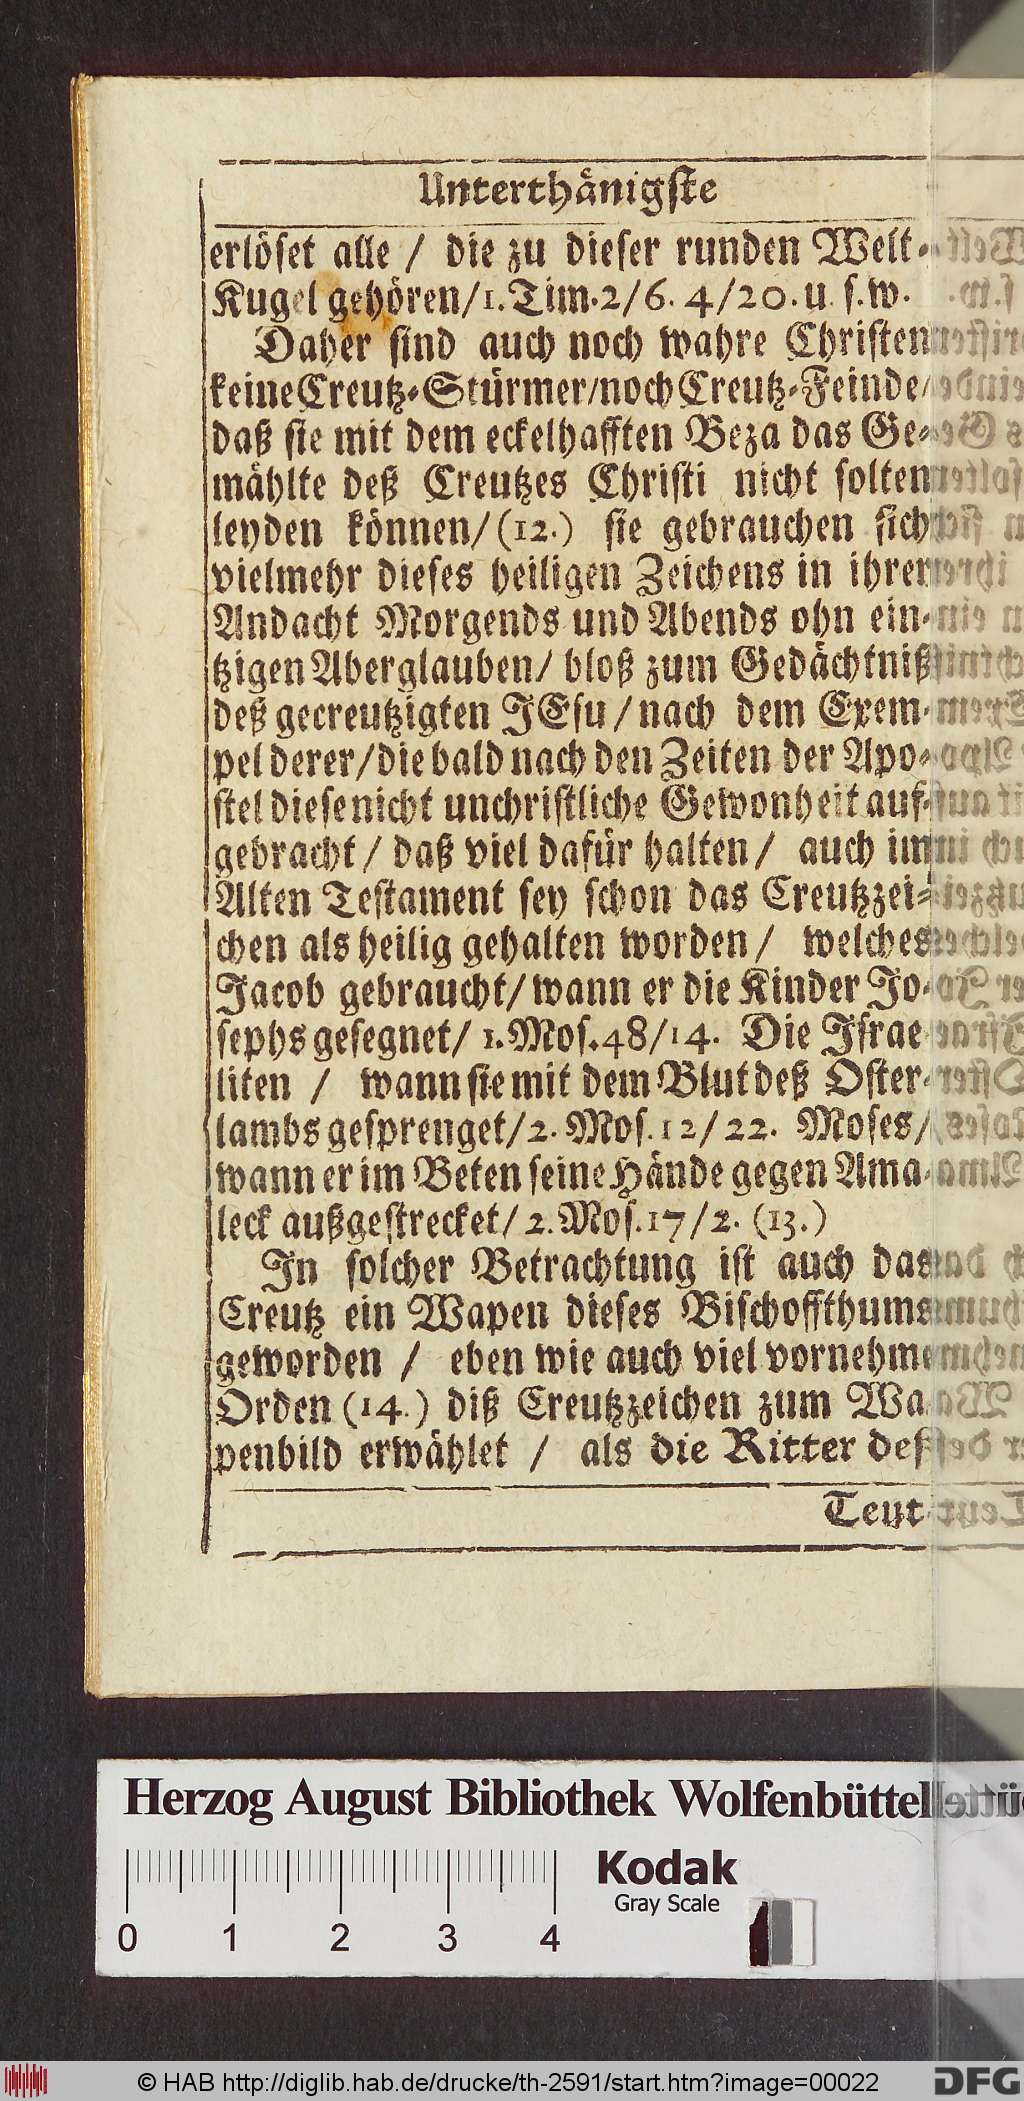 Unterthänigste
erlöset alle / die zu dieser runden Welt-
Kugel gehören/1. Tim. 2/6. 4/20. u. s. w.
Daher sind auch noch wahre Christen
keine Creutz-Stürmer/noch Creutz-Feinde/
daß sie mit dem eckelhafften Beza das Ge-
mählte deß Creutzes Christi nicht solten
leyden können/(12.) sie gebrauchen sich
vielmehr dieses heiligen Zeichens in ihrer
Andacht Morgends und Abends ohn ein-
tzigen Aberglauben/ bloß zum Gedächtniß
deß gecreutzigten JEsu / nach dem Exem-
pel derer/die bald nach den Zeiten der Apo-
stel diese nicht unchristliche Gewonheit auf-
gebracht / daß viel dafür halten / auch im
Alten Testament sey schon das Creutzzei-
chen als heilig gehalten worden / welches
Jacob gebraucht/ wann er die Kinder Jo-
sephs gesegnet/ 1. Mos. 48/14. Die Israe-
liten / wann sie mit dem Blut deß Oster-
lambs gesprenget/2. Mos. 12/22. Moses/
wann er im Beten seine Hände gegen Ama-
leck außgestrecket/ 2. Mos. 17/2. (13.)
In solcher Betrachtung ist auch das
Creutz ein Wapen dieses Bischoffthums
geworden / eben wie auch viel vornehme
Orden (14.) diß Creutzzeichen zum Wa-
penbild erwählet / als die Ritter deß
Teut-
Herzog August Bibliothek Wolfenbüttel
Kodak
Gray Scale
0 1 2 3 4
© HAB http://diglib.hab.de/drucke/th-2591/start.htm?image=00022
DFG